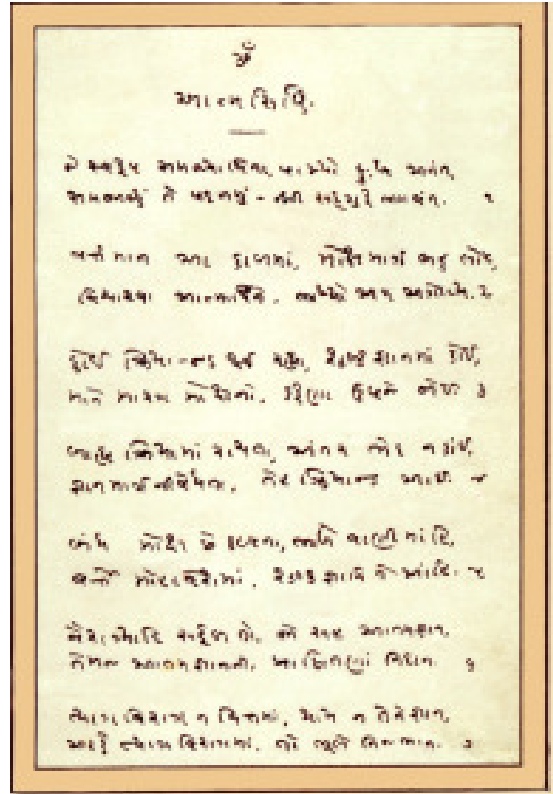 ૐ
આત્મસિદ્ધિ.
જે સ્વરૂપ સમજ્યા વિના, પામ્યો દુઃખ અનંત,
સમજાવ્યું તે પદ નમું, શ્રી સદ્‌ગુરુ ભગવંત. ૧
વર્તમાન આ કાળમાં, મોક્ષમાર્ગ બહુ લોપ,
વિચારવા આત્માર્થિને, ભાખ્યો અત્ર અગોપ્ય. ૨
કોઈ ક્રિયાજડ થઈ રહ્યા, શુષ્કજ્ઞાનમાં કોઈ,
માને મારગ મોક્ષનો, કરુણા ઉપજે જોઈ ૩
બાહ્ય ક્રિયામાં રાચતા, અંતર ભેદ ન કાંઈ,
જ્ઞાનમાર્ગ નિષેધતા, તેહ ક્રિયાજડ આંઈ ૪
બંધ મોક્ષ છે કલ્પના, ભાખે વાણી માંહિ,
વર્તે મોહાવેશમાં, શુષ્કજ્ઞાની તે આંહિ. ૫
વૈરાગ્યાદિ સફળ તો, જો સહ આતમજ્ઞાન,
તેમજ આતમજ્ઞાનની, પ્રાપ્તિતણાં નિદાન. ૬
ત્યાગ વિરાગ ન ચિત્તમાં, થાય ન તેને જ્ઞાન,
અટકે ત્યાગ વિરાગમાં, તો ભૂલે નિજભાન. ૭